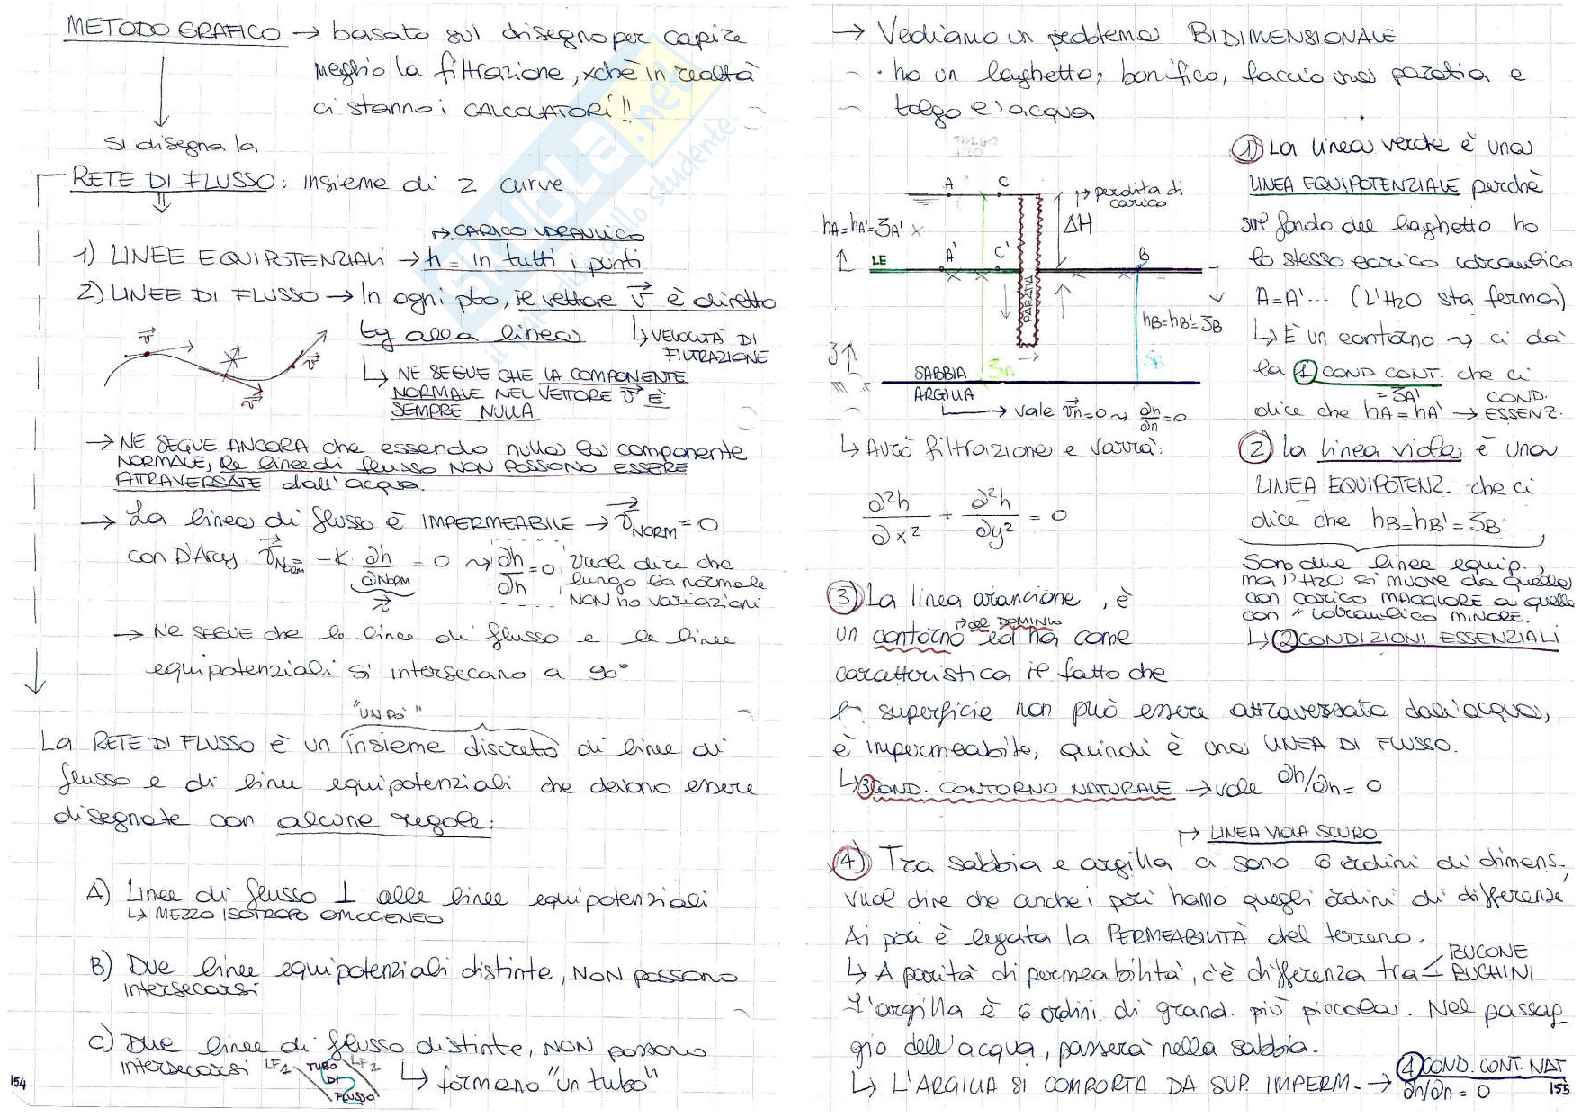 METODO GRAFICO → basato sul disegno per capire
meglio la filtrazione, xchè in realtà
ci stanno i CALCOLATORI!!
si disegna la
RETE DI FLUSSO: insieme di 2 curve
→ CARICO IDRAULICO
1) LINEE EQUIPOTENZIALI → h = in tutti i punti
2) LINEE DI FLUSSO → In ogni pto, il vettore v è diretto
tg alla linea
↳ VELOCITÀ DI
FILTRAZIONE
↳ NE SEGUE CHE LA COMPONENTE
NORMALE NEL VETTORE v È
SEMPRE NULLA
→ NE SEGUE ANCORA che essendo nulla la componente
NORMALE, le linee di flusso NON POSSONO ESSERE
ATTRAVERSATE dall'acqua.
→ La linea di flusso è IMPERMEABILE → v NORM = 0
con D'Arcy v Norm = -K · ∂h/∂NORM = 0 ⇝ ∂h/∂n = 0
Vuol dire che
lungo la normale
NON ho variazioni
→ NE SEGUE che le linee di flusso e le linee
equipotenziali si intersecano a 90°
"UN PO'"
La RETE DI FLUSSO è un insieme discreto di linee di
flusso e di linee equipotenziali che devono essere
disegnate con alcune regole:
A) Linee di flusso ⊥ alle linee equipotenziali
↳ MEZZO ISOTROPO OMOGENEO
B) Due linee equipotenziali distinte, NON possono
intersecarsi
C) Due linee di flusso distinte, NON possono
intersecarsi
LF1
TUBO
DI
FLUSSO
LF2
↳ formano "un tubo"
154
→ Vediamo un problema BIDIMENSIONALE
· ho un laghetto, bonifico, faccio una paratia e
tolgo l'acqua
A
C
→ perdita di
carico
ΔH
hA = hA' = zA'
LE
A'
C'
B
PARATIA
hB = hB' = zB
z
SABBIA
ARGILLA
→ vale vn = 0 ⇝ ∂h/∂n = 0
↳ Avrò filtrazione e varrà:
∂²h/∂x² + ∂²h/∂y² = 0
① La linea verde è una
LINEA EQUIPOTENZIALE perchè
sul fondo del laghetto ho
lo stesso carico idraulico
A = A'... (L'H2O sta ferma)
↳ È un contorno ⇝ ci dà
la ① COND CONT. che ci
dice che hA = hA' = zA' → COND.
ESSENZ.
② La linea viola è una
LINEA EQUIPOTENZ. che ci
dice che hB = hB' = zB
Sono due linee equip.,
ma l'H2O si muove da quella
con carico MAGGIORE a quella
con " idraulico MINORE.
↳ ② CONDIZIONI ESSENZIALI
③ La linea arancione, è
→ del DOMINIO
un contorno ed ha come
caratteristica il fatto che
la superficie non può essere attraversata dall'acqua,
è impermeabile, quindi è una LINEA DI FLUSSO.
↳ ③ COND. CONTORNO NATURALE → vale ∂h/∂n = 0
→ LINEA VIOLA SCURO
④ Tra sabbia e argilla ci sono 6 ordini di dimens.,
vuol dire che anche i pori hanno quegli ordini di differenza
Ai pori è legata la PERMEABILITÀ del terreno.
↳ A parità di permeabilità, c'è differenza tra BUCONE
BUCHINI
L'argilla è 6 ordini di grand. più piccola. Nel passag-
gio dell'acqua, passerà nella sabbia.
↳ L'ARGILLA SI COMPORTA DA SUP. IMPERM. → ④ COND. CONT. NAT
∂h/∂n = 0
155